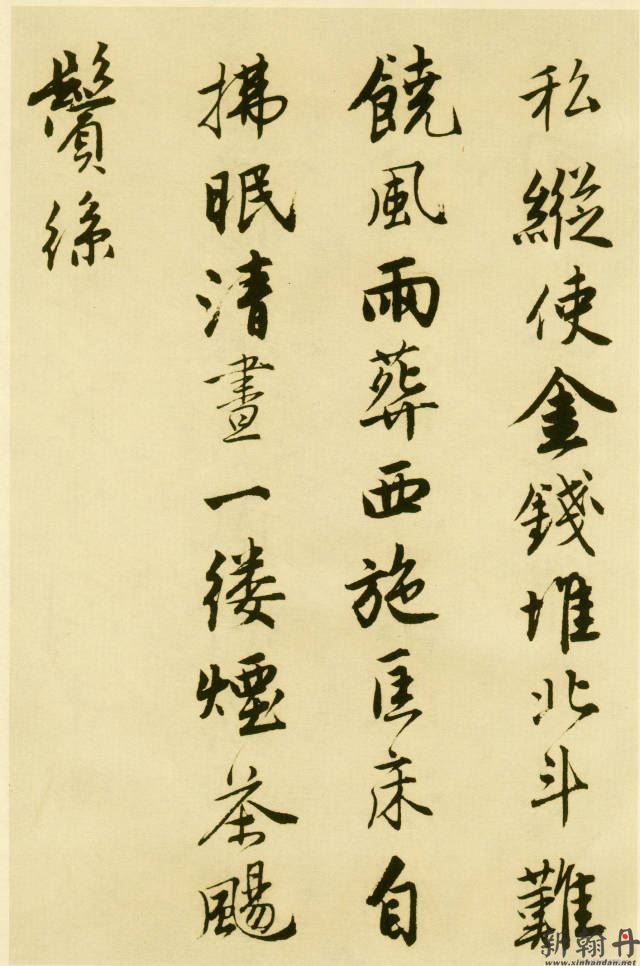 私縱使金錢堆北斗難
饒風雨葬西施匡床自
拂眠清晝一縷煙茶颺
鬢絲
新翰丹
www.xinhandan.net